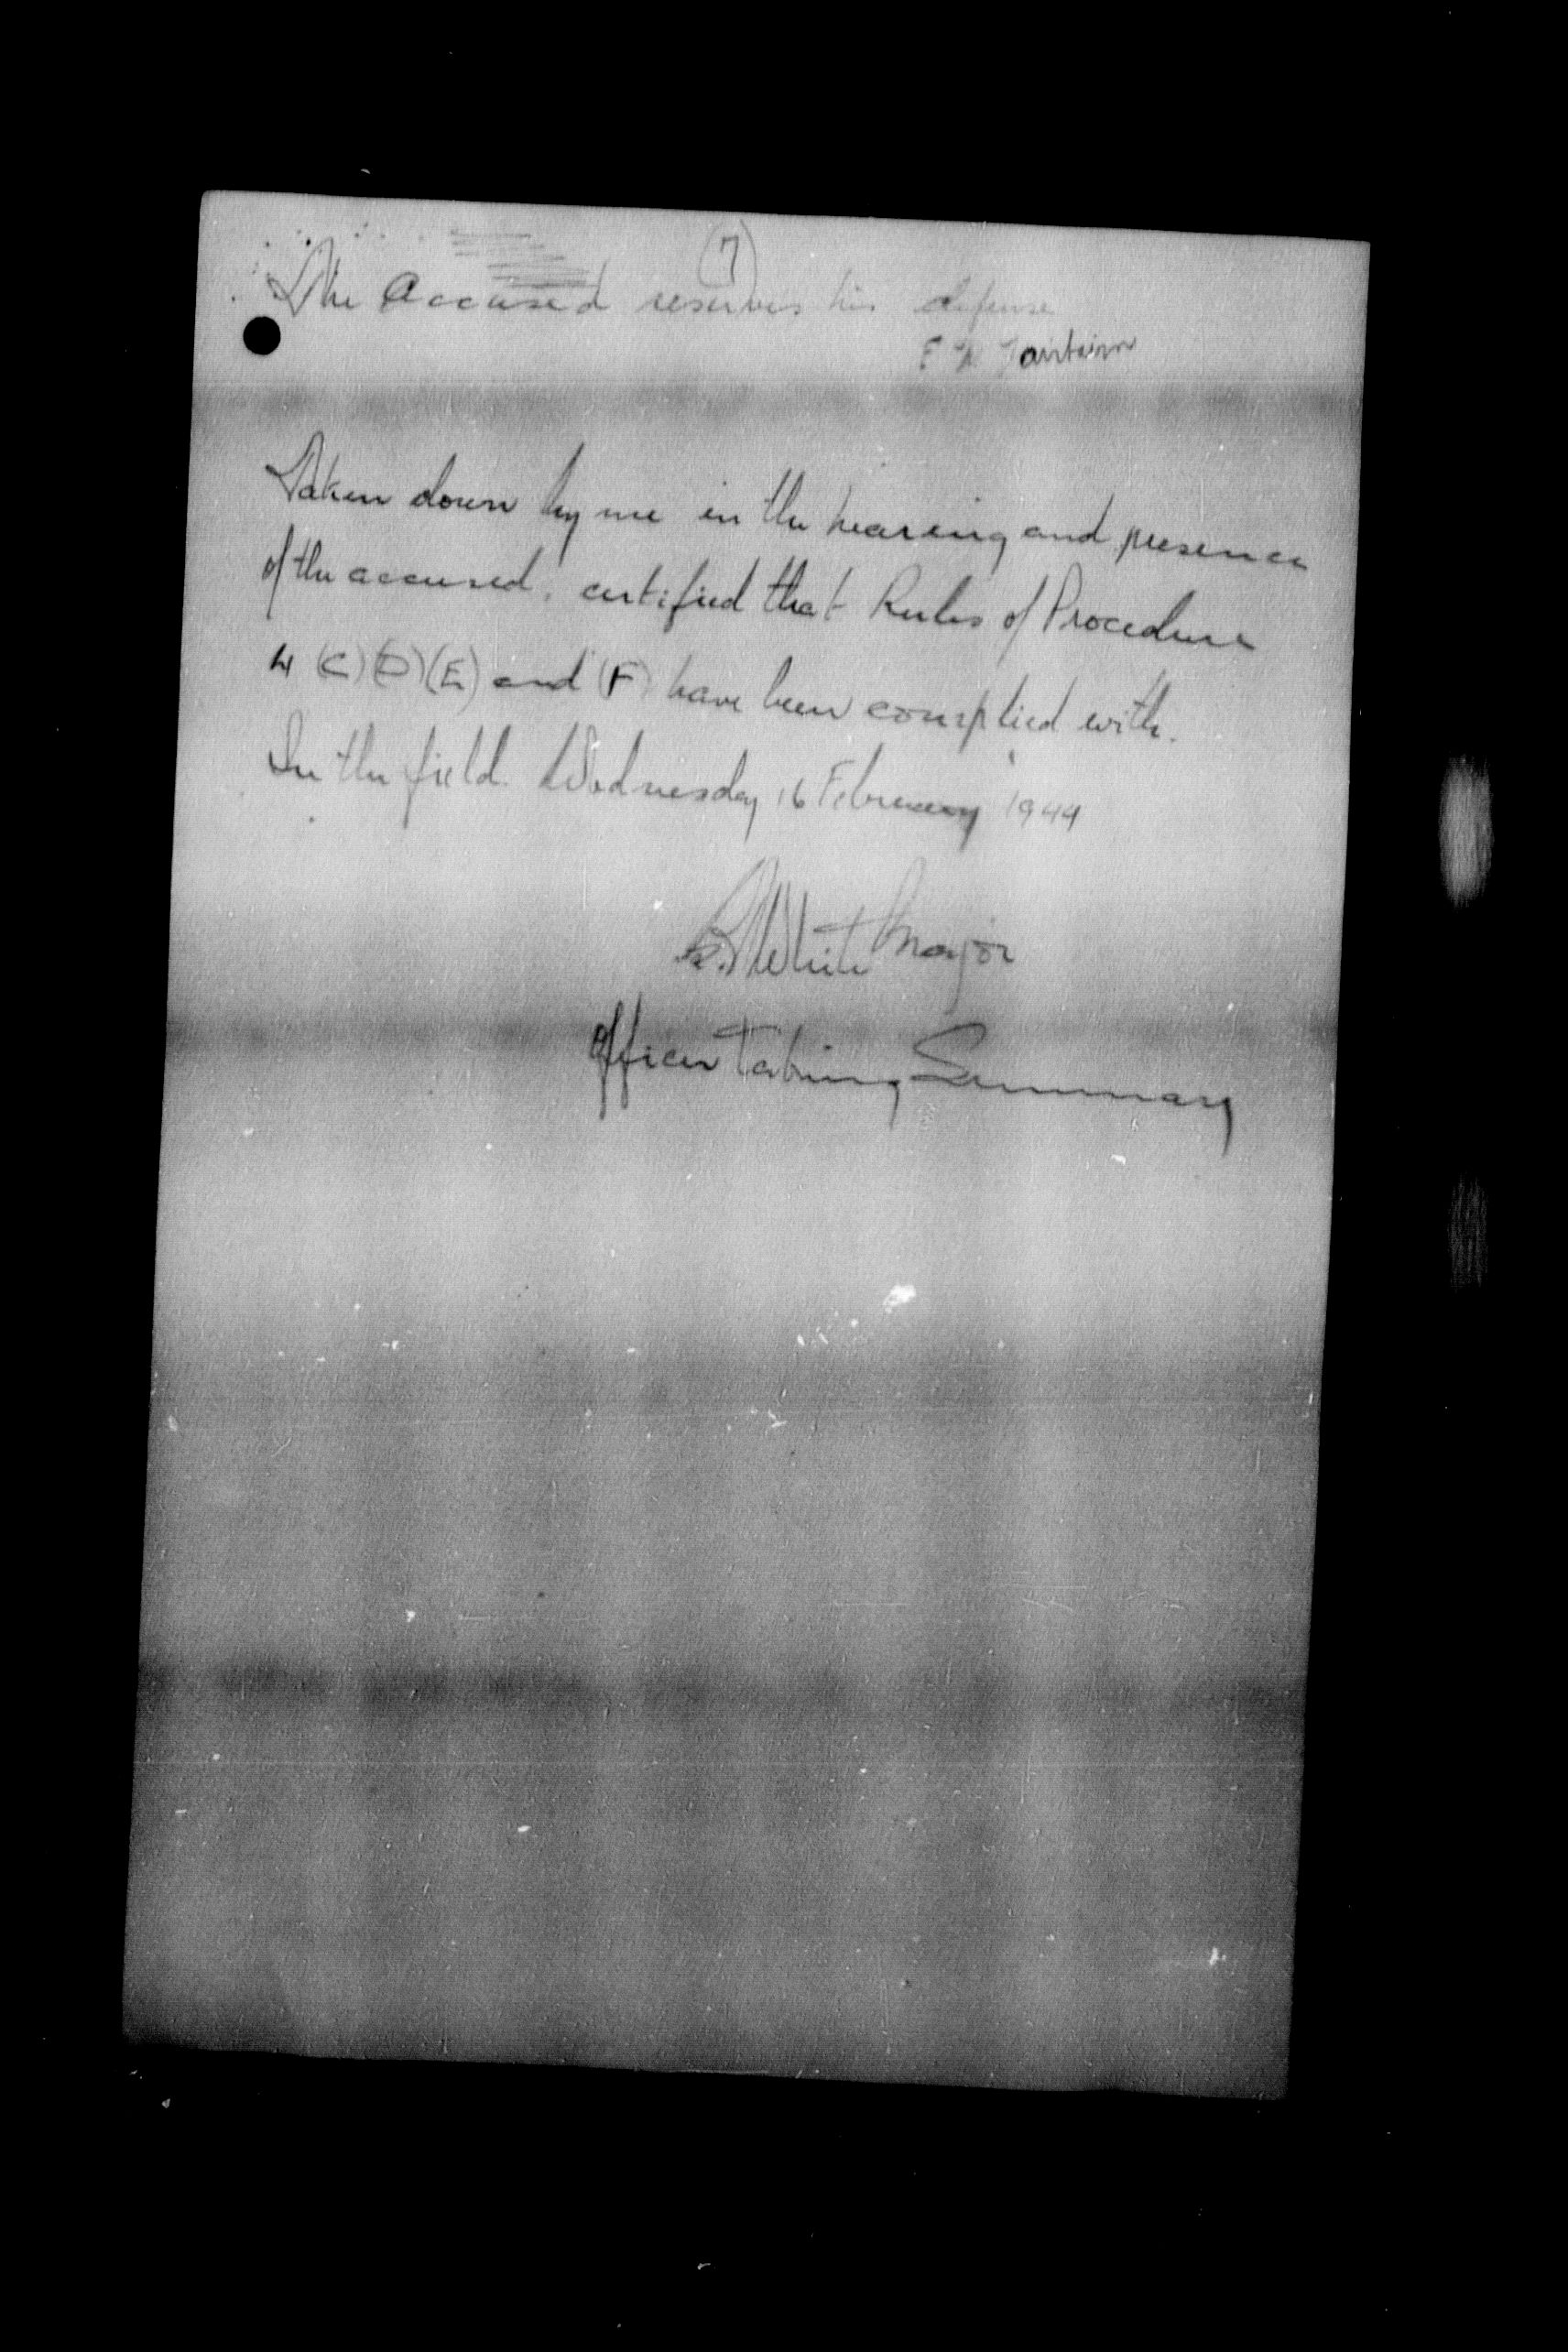 (7)
The Accused reserves his defense
Taken down by me in the hearing and presence
of the accused. certified that Rules of Procedure
4 (C)(D)(E) and (F) have been complied with.
In the field. Wednesday 16 February 1944
White Major
Officer Taking Summary